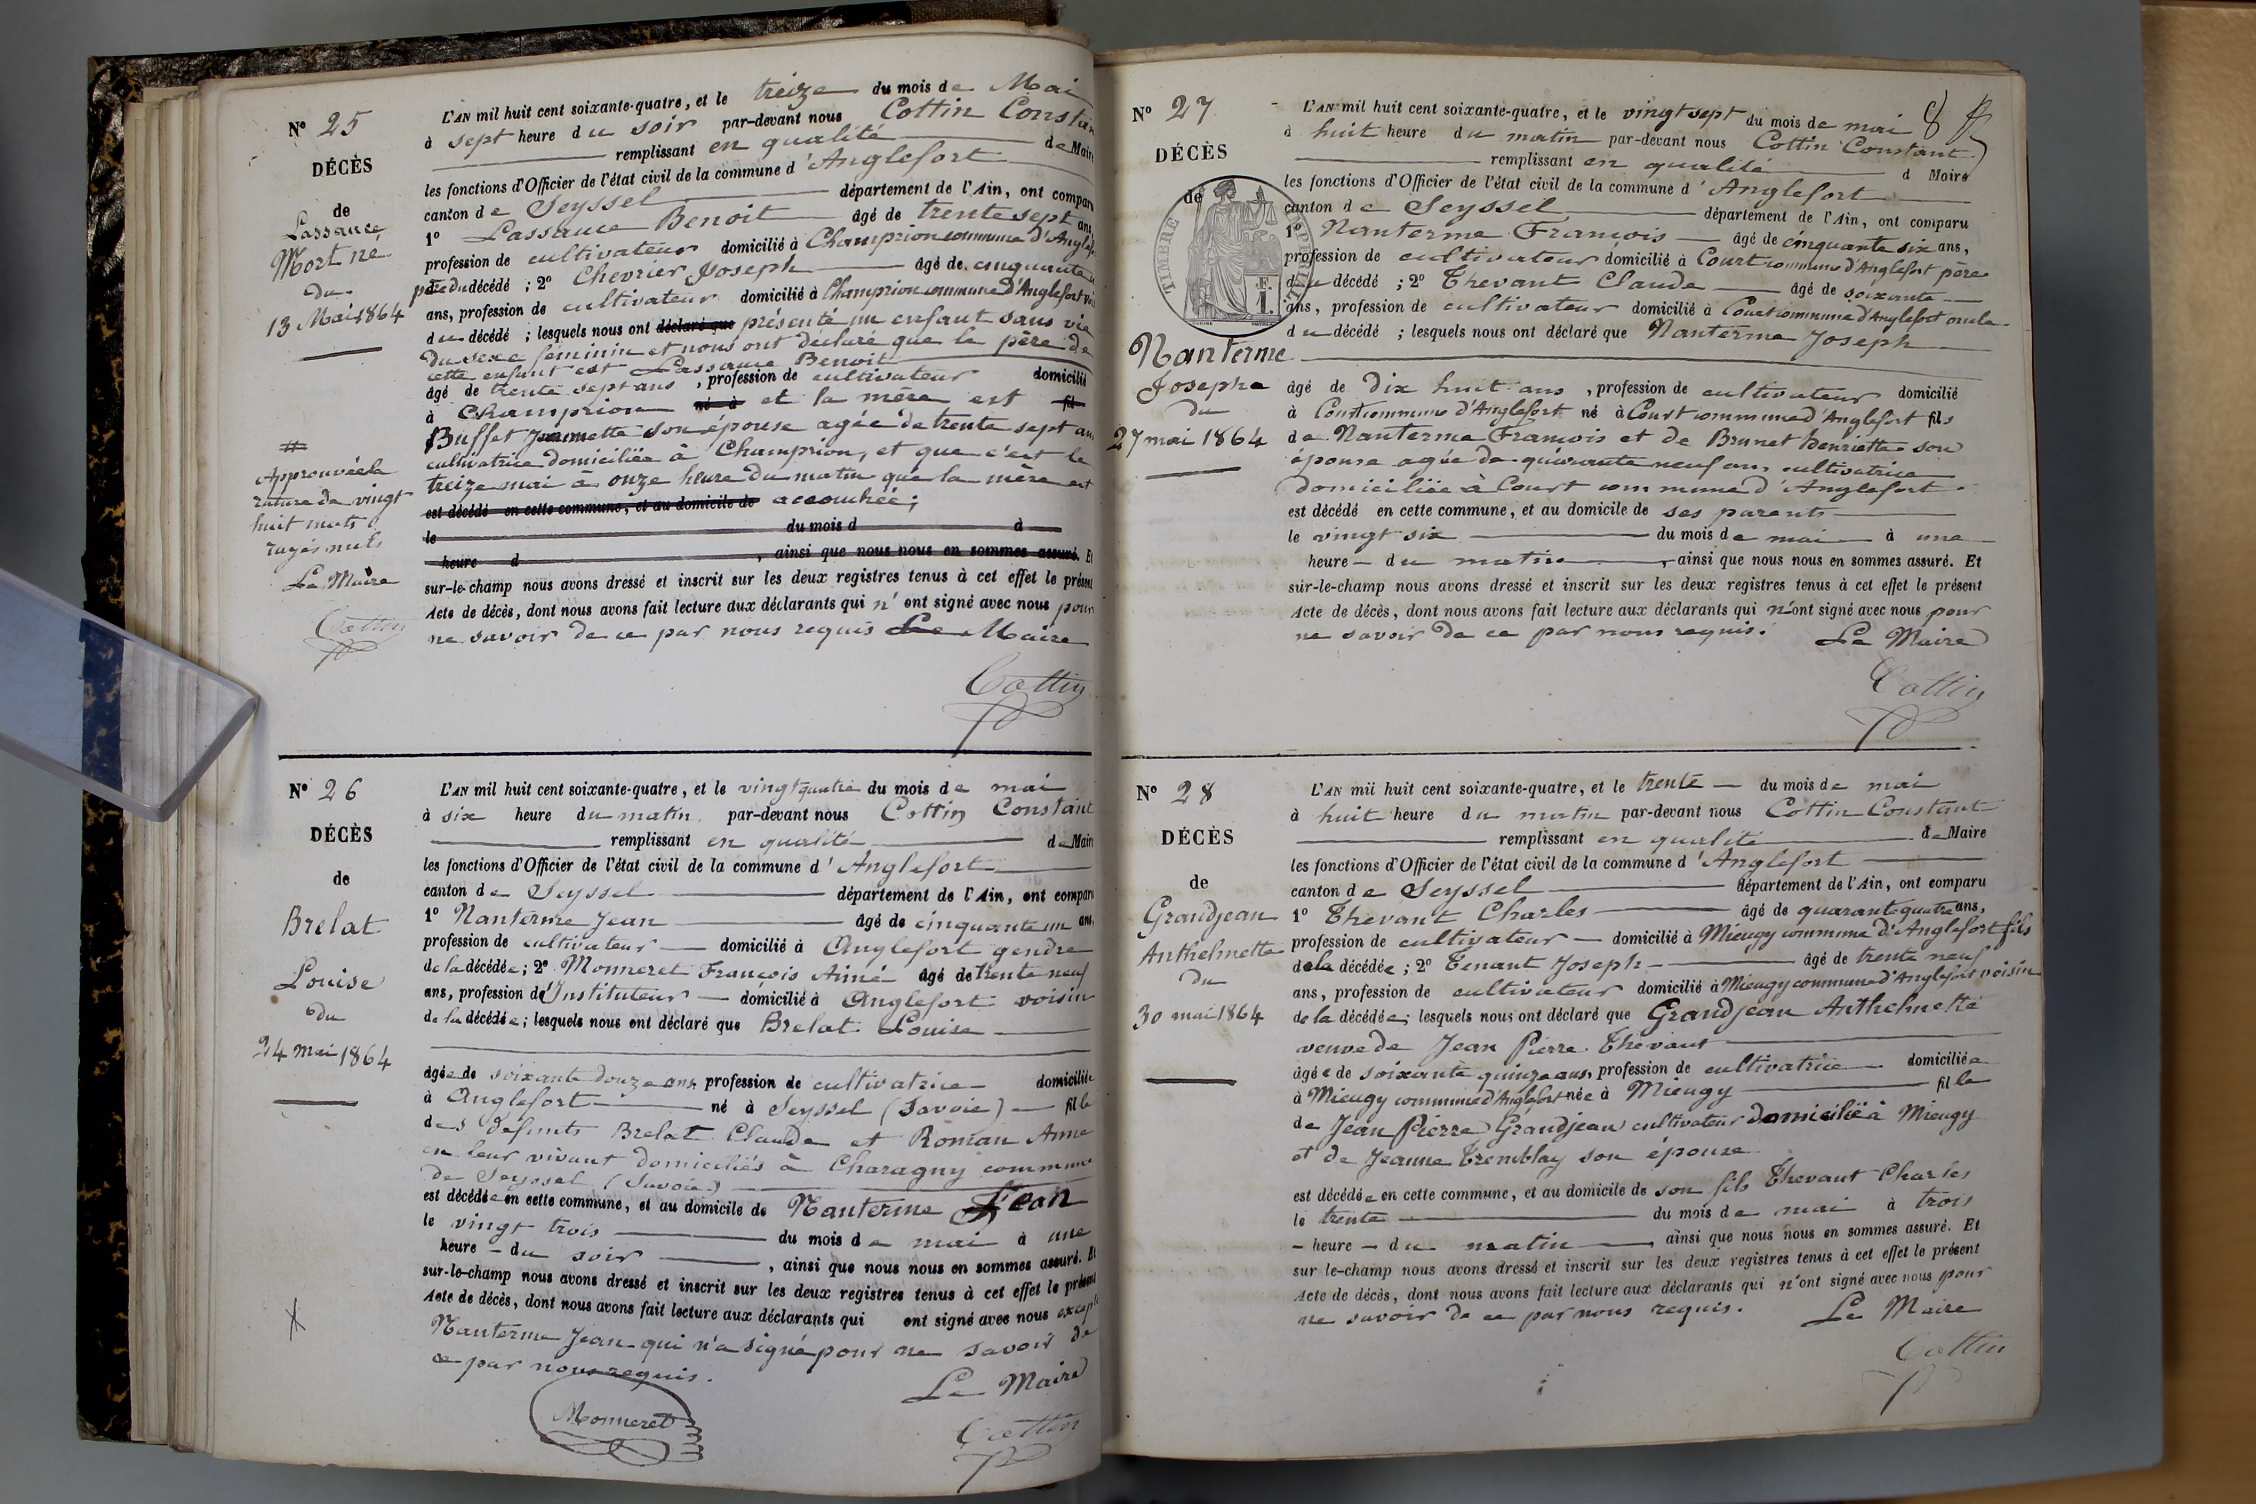 N° 25
DÉCÈS
de
Lassauce
Mort né
du
13 Mai 1864
L'AN mil huit cent soixante-quatre, et le treize du mois de Mai
à sept heure du soir par-devant nous Cottin Constan
remplissant en qualité de Maire
les fonctions d'Officier de l'état civil de la commune d'Anglefort
canton de Seyssel département de l'Ain, ont comparu
1° Lassauce Benoit âgé de trente sept ans,
profession de cultivateur domicilié à Champrion commune d'Anglefort
père du décédé ; 2° Chevrier Joseph âgé de cinquante
ans, profession de cultivateur domicilié à Champrion commune d'Anglefort
du décédé ; lesquels nous ont déclaré que présenté un enfant sans vie
du sexe féminin et nous ont déclaré que le père de
cette enfant est Lassauce Benoit
âgé de trente sept ans, profession de cultivateur domicilié
à Champrion né à et la mère est fil
Buffet Jeannette son épouse agée de trente sept ans
cultivatrice domiciliée à Champrion, et que c'est le
treize mai à onze heure du matin que la mère est
est décédé en cette commune, et au domicile de accouchée ;
le du mois d à
heure d , ainsi que nous nous en sommes assuré. Et
sur-le-champ nous avons dressé et inscrit sur les deux registres tenus à cet effet le présent
Acte de décès, dont nous avons fait lecture aux déclarants qui n'ont signé avec nous pour
ne savoir de ce par nous requis Le Maire
Cottin
Approuvée la
rature de vingt
huit mots
rayés nuls
Le Maire
Cottin
N° 26
DÉCÈS
de
Brelat
Louise
du
24 Mai 1864
L'AN mil huit cent soixante-quatre, et le vingt quatre du mois de mai
à six heure du matin par-devant nous Cottin Constant
remplissant en qualité de Maire
les fonctions d'Officier de l'état civil de la commune d'Anglefort
canton de Seyssel département de l'Ain, ont comparu
1° Nanterme Jean âgé de cinquante un ans,
profession de cultivateur domicilié à Anglefort gendre
de la décédée ; 2° Monneret François Aimé âgé de trente neuf
ans, profession d'Instituteur domicilié à Anglefort voisin
de la décédée ; lesquels nous ont déclaré que Brelat Louise
âgée de soixante douze ans profession de cultivatrice domiciliée
à Anglefort né à Seyssel (Savoie) fille
des défunts Brelat Claude et Roman Anne
en leur vivant domiciliés à Charagny commune
de Seyssel (Savoie)
est décédée en cette commune, et au domicile de Nanterme Jean
le vingt trois du mois de mai à une
heure du soir , ainsi que nous nous en sommes assuré. Et
sur-le-champ nous avons dressé et inscrit sur les deux registres tenus à cet effet le présent
Acte de décès, dont nous avons fait lecture aux déclarants qui ont signé avec nous excepté
Nanterme Jean qui n'a signé pour ne savoir de
ce par nous requis.
Le Maire
Monneret
Cottin
N° 27
DÉCÈS
de
TIMBRE IMPÉRIAL
1 F.
Nanterme
Josephe
du
27 mai 1864
L'AN mil huit cent soixante-quatre, et le vingt sept du mois de mai 8
à huit heure du matin par-devant nous Cottin Constant
remplissant en qualité d Maire
les fonctions d'Officier de l'état civil de la commune d'Anglefort
canton de Seyssel département de l'Ain, ont comparu
1° Nanterme François âgé de cinquante six ans,
profession de cultivateur domicilié à Court commune d'Anglefort père
du décédé ; 2° Thevant Claude âgé de soixante
ans, profession de cultivateur domicilié à Court commune d'Anglefort oncle
du décédé ; lesquels nous ont déclaré que Nanterme Joseph
âgé de dix huit ans, profession de cultivateur domicilié
à Court commune d'Anglefort né à Court commune d'Anglefort fils
de Nanterme François et de Brunet henriette son
épouse agée de quarante neuf ans cultivatrice
domiciliée à Court commune d'Anglefort.
est décédé en cette commune, et au domicile de ses parents
le vingt six du mois de mai à une
heure du matin , ainsi que nous nous en sommes assuré. Et
sur-le-champ nous avons dressé et inscrit sur les deux registres tenus à cet effet le présent
Acte de décès, dont nous avons fait lecture aux déclarants qui n'ont signé avec nous pour
ne savoir de ce par nous requis. Le Maire
Cottin
N° 28
DÉCÈS
de
Grandjean
Anthelmette
du
30 mai 1864
L'AN mil huit cent soixante-quatre, et le trente du mois de mai
à huit heure du matin par-devant nous Cottin Constant
remplissant en qualité de Maire
les fonctions d'Officier de l'état civil de la commune d'Anglefort
canton de Seyssel département de l'Ain, ont comparu
1° Thevant Charles âgé de quarante quatre ans,
profession de cultivateur domicilié à Mieugy commune d'Anglefort fils
de la décédée ; 2° Tenant Joseph âgé de trente neuf
ans, profession de cultivateur domicilié à Mieugy commune d'Anglefort voisin
de la décédée ; lesquels nous ont déclaré que Grandjean Anthelmette
veuve de Jean Pierre Thevant
âgée de soixante quinze ans, profession de cultivatrice domiciliée
à Mieugy commune d'Anglefort née à Mieugy fille
de Jean Pierre Grandjean cultivateur domicilië à Mieugy
et de Jeanne Tremblay son épouse
est décédée en cette commune, et au domicile de son fils Thevant Charles
le trente du mois de mai à trois
heure du matin , ainsi que nous nous en sommes assuré. Et
sur le-champ nous avons dressé et inscrit sur les deux registres tenus à cet effet le présent
Acte de décès, dont nous avons fait lecture aux déclarants qui n'ont signé avec nous pour
ne savoir de ce par nous requis. Le Maire
Cottin